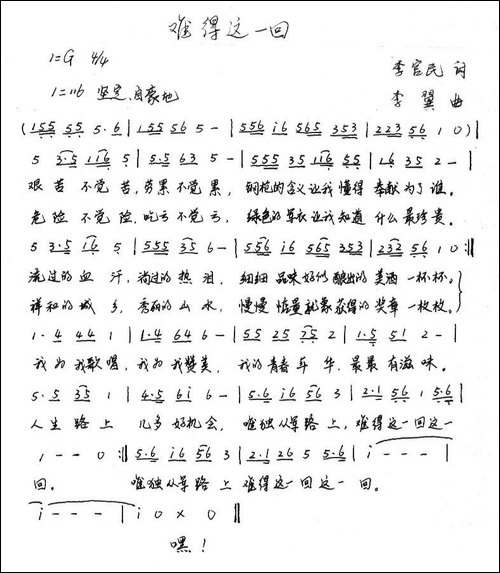 难得这一回
1=G 4/4
李官民 词
1=116 坚定、自豪地
李翼 曲
(155 55 5·6 | 155 56 5 - | 556 i6 565 353 | 223 56 1 0) |
5 3·5 116 5 | 5·5 63 5 - | 555 35 116 55 | 16 35 2 - |
艰苦 不觉 苦,劳累 不觉 累, 钢枪的含义让我 懂得 奉献为了谁。
危险 不觉 险,吃亏 不觉 亏, 绿色的军衣让我 知道 什么最珍贵。
5 3·5 16 5 | 555 35 6 - | 556 i6 565 353 | 232 56 1 0 :||
流过的血 汗,淌过的热 泪, 细细 品味好似 酿出的美酒 一杯杯。
祥和的城 乡,秀丽的山 水, 慢慢 掂量就象 获得的奖章 一枚枚。
1·4 44 1 | 1·4 64 6 - | 55 25 75 2 | 1·5 51 2 - |
我为我歌唱,我为我赞美, 我的青春年华,最最有滋味。
5·5 35 1 | 4·5 6i 6 - | 5·6 i6 56 3 | 2·1 56 1 5·6 |
人生 路上 几多好机会, 唯独从军路上,难得这一回这一
1 - - 0 :|| 5·6 i6 56 3 | 2·1 26 5 5·6 | i - - - |
回。 唯独从军路上 难得这一回这一 回。
i - - - | i 0 x 0 ||
嘿!